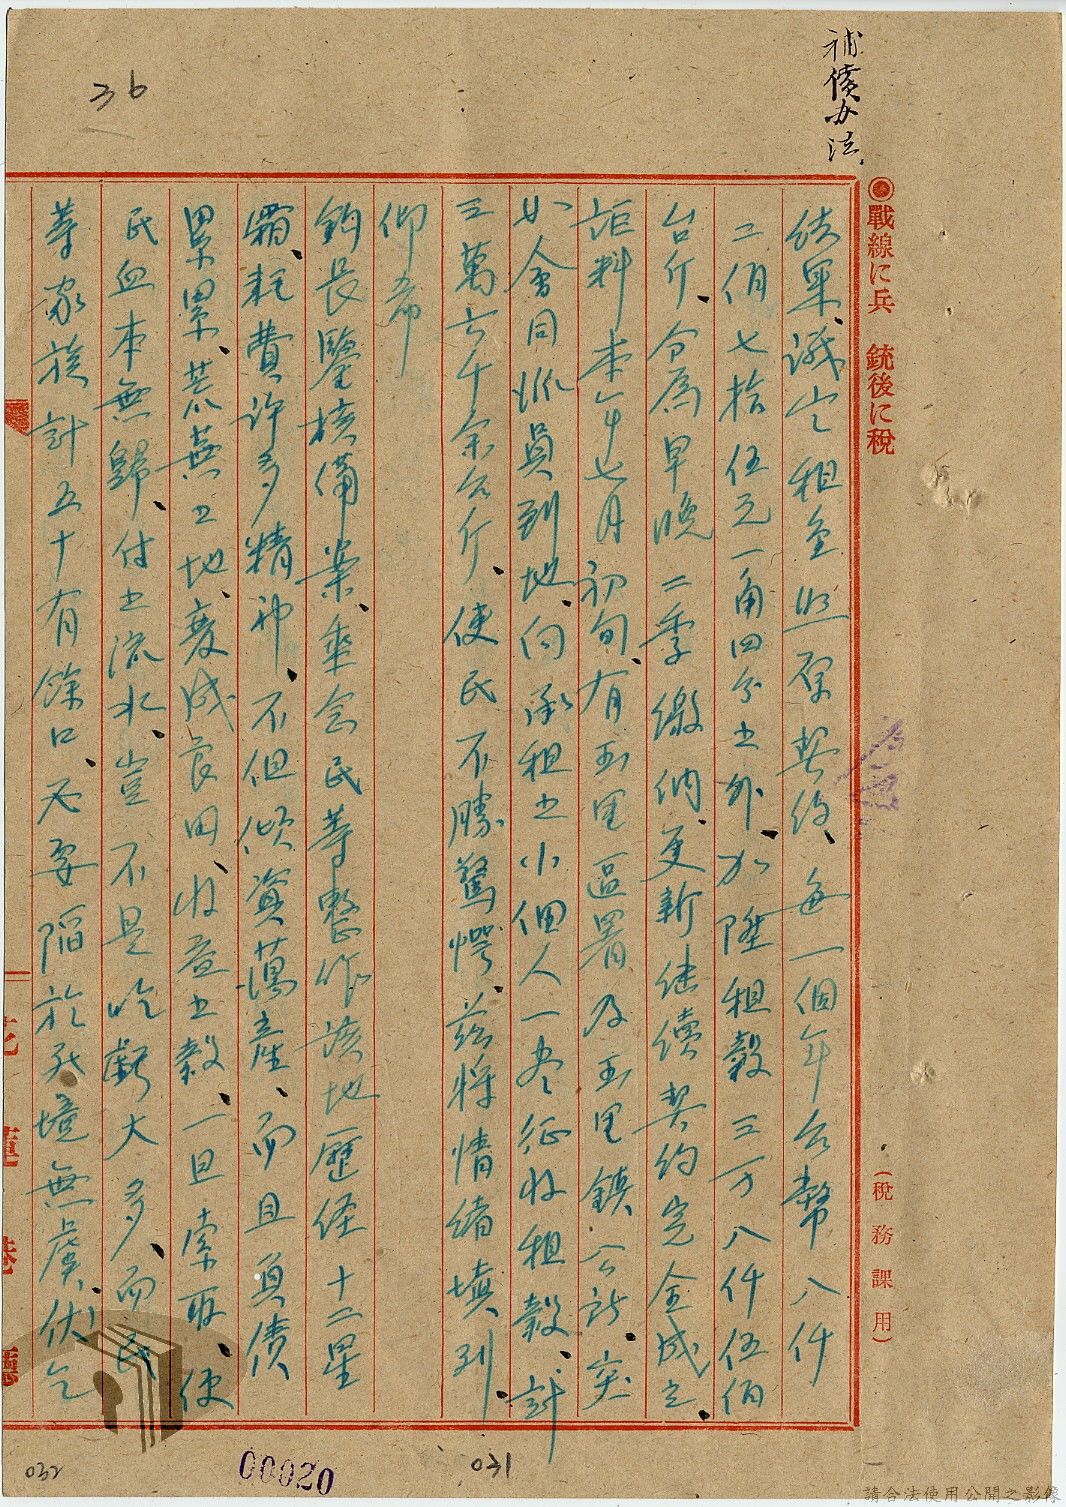 補償办法
●戰線に兵　銃後に稅
（稅務課用）
36
結果、議定租金照原契約、每一個年台幣八仟
二佰七拾伍元一角四分之外、加陞租穀三万八仟伍佰
台斤、分為早晚二季繳納、更新継續契約完全成立、
詎料本年七月初旬、有玉里區署及玉里鎮公所、突
如會同派員到地、向承租之小個人一尽征收租穀、計
三萬六千余台斤、使民不勝驚愕、茲将情緒填列、
仰希
鈞長鑒核備案、垂念民等整作該地歷经十二星
霜、耗費許多精神、不但傾資蕩產、而且負債
累累、荒蕪之地、変成良田、收益之穀、一旦索取、使
民血本無歸、付之流水、豈不是吃虧大多、而民
等家族計五十有餘口、不要陷於死境無虞、伏乞
花蓮港廳
032
00020
031
請合法使用公開之影像